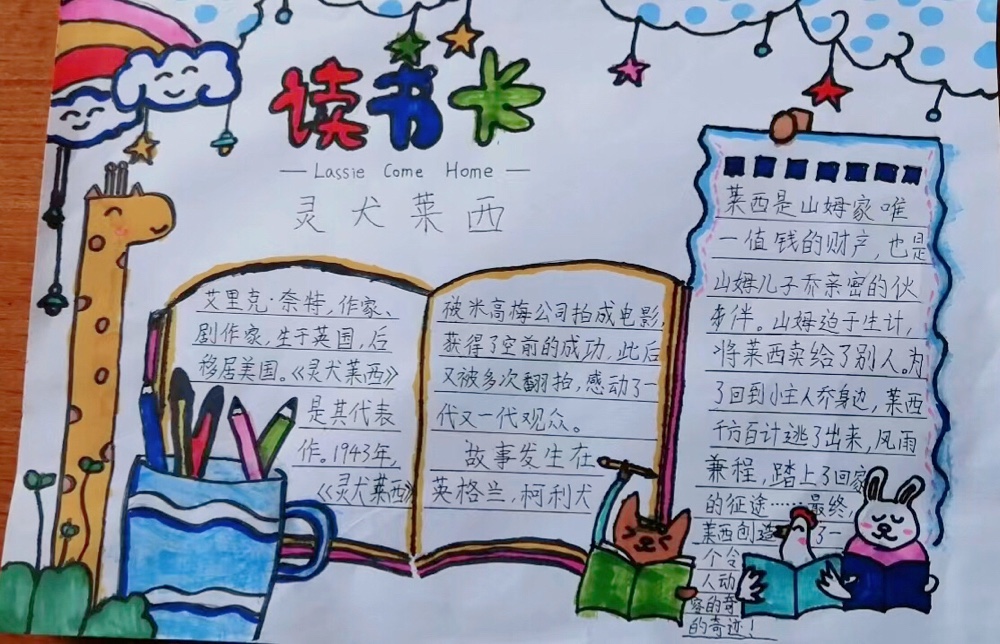 读书长
— Lassie Come Home —
灵犬莱西
艾里克·奈特,作家、
剧作家,生于英国,后
移居美国。《灵犬莱西》
是其代表
作。1943年,
《灵犬莱西》
被米高梅公司拍成电影,
获得了空前的成功,此后
又被多次翻拍,感动了一
代又一代观众。
故事发生在
英格兰,柯利犬
莱西是山姆家唯
一值钱的财产,也是
山姆儿子乔亲密的伙
伴。山姆迫于生计,
将莱西卖给了别人。为
了回到小主人乔身边,莱西
千方百计逃了出来,风雨
兼程,踏上了回家
的征途……最终,
莱西创造了一
个令
人动
容的奇
的奇迹!